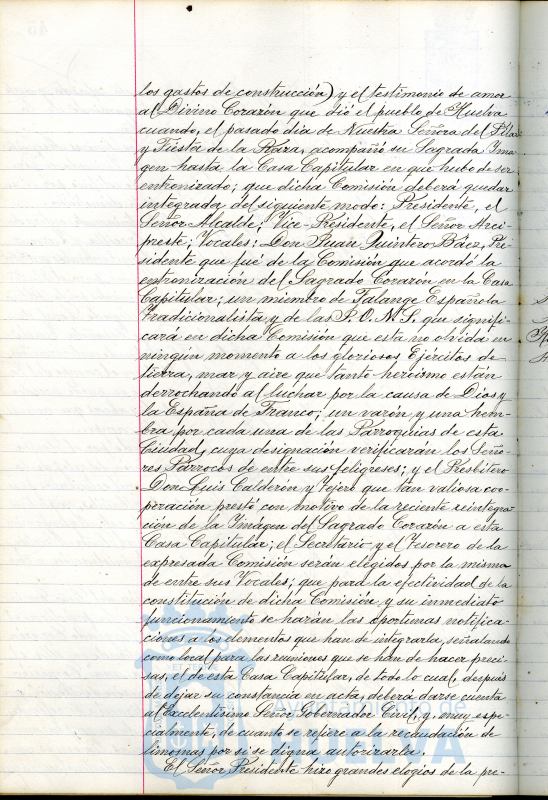 los gastos de construcción) y el testimonio de amor
al Divino Corazón que dió el pueblo de Huelva
cuando, el pasado dia de Nuestra Señora del Pilar
y Fiesta de la Raza, acompañó su Sagrada Ima-
gen hasta la Casa Capitular en que hubo de ser
entronizado; que dicha Comisión deberá quedar
integrada del siguiente modo: Presidente, el
Señor Alcalde; Vice-Presidente, el Señor Arci-
preste; Vocales; Don Juan Quintero Báez, Pre-
sidente que fué de la Comisión que acordó la
entronización del Sagrado Corazón en la Casa
Capitular; un miembro de Falange Española
Tradicionalista y de las J.O.N.S. que signifi-
cará en dicha Comisión que esta no olvida en
ningún momento a los gloriosos Ejércitos de
tierra, mar y aire que tanto heroismo están
derrochando al luchar por la causa de Dios y
la España de Franco; un varón y una hem-
bra por cada una de las Parroquias de esta
Ciudad, cuya designación verificarán los Seño-
res Párrocos de entre sus feligreses; y el Presbítero
Don Luis Calderón y Tejero que tan valiosa coo-
peración prestó con motivo de la reciente reintegra-
ción de la Imágen del Sagrado Corazón a esta
Casa Capitular; el Secretario y el Tesorero de la
expresada Comisión serán elegidos por la misma
de entre sus Vocales; que para la efectividad de la
constitución de dicha Comisión y su inmediato
funcionamiento se harán las oportunas notifica-
ciones a los elementos que han de integrarla, señalando
como local para las reuniones que se han de hacer preci-
sas, el de esta Casa Capitular, de todo lo cual, después
de dejar su constancia en acta, deberá darse cuenta
al Excelentísimo Señor Gobernador Civil, y, muy espe-
cialmente, de cuanto se refiere a la recaudación de
limosnas por si se digna autorizarla.
El Señor Presidente hizo grandes elogios de la pre-
Ayuntamiento de
HUELVA